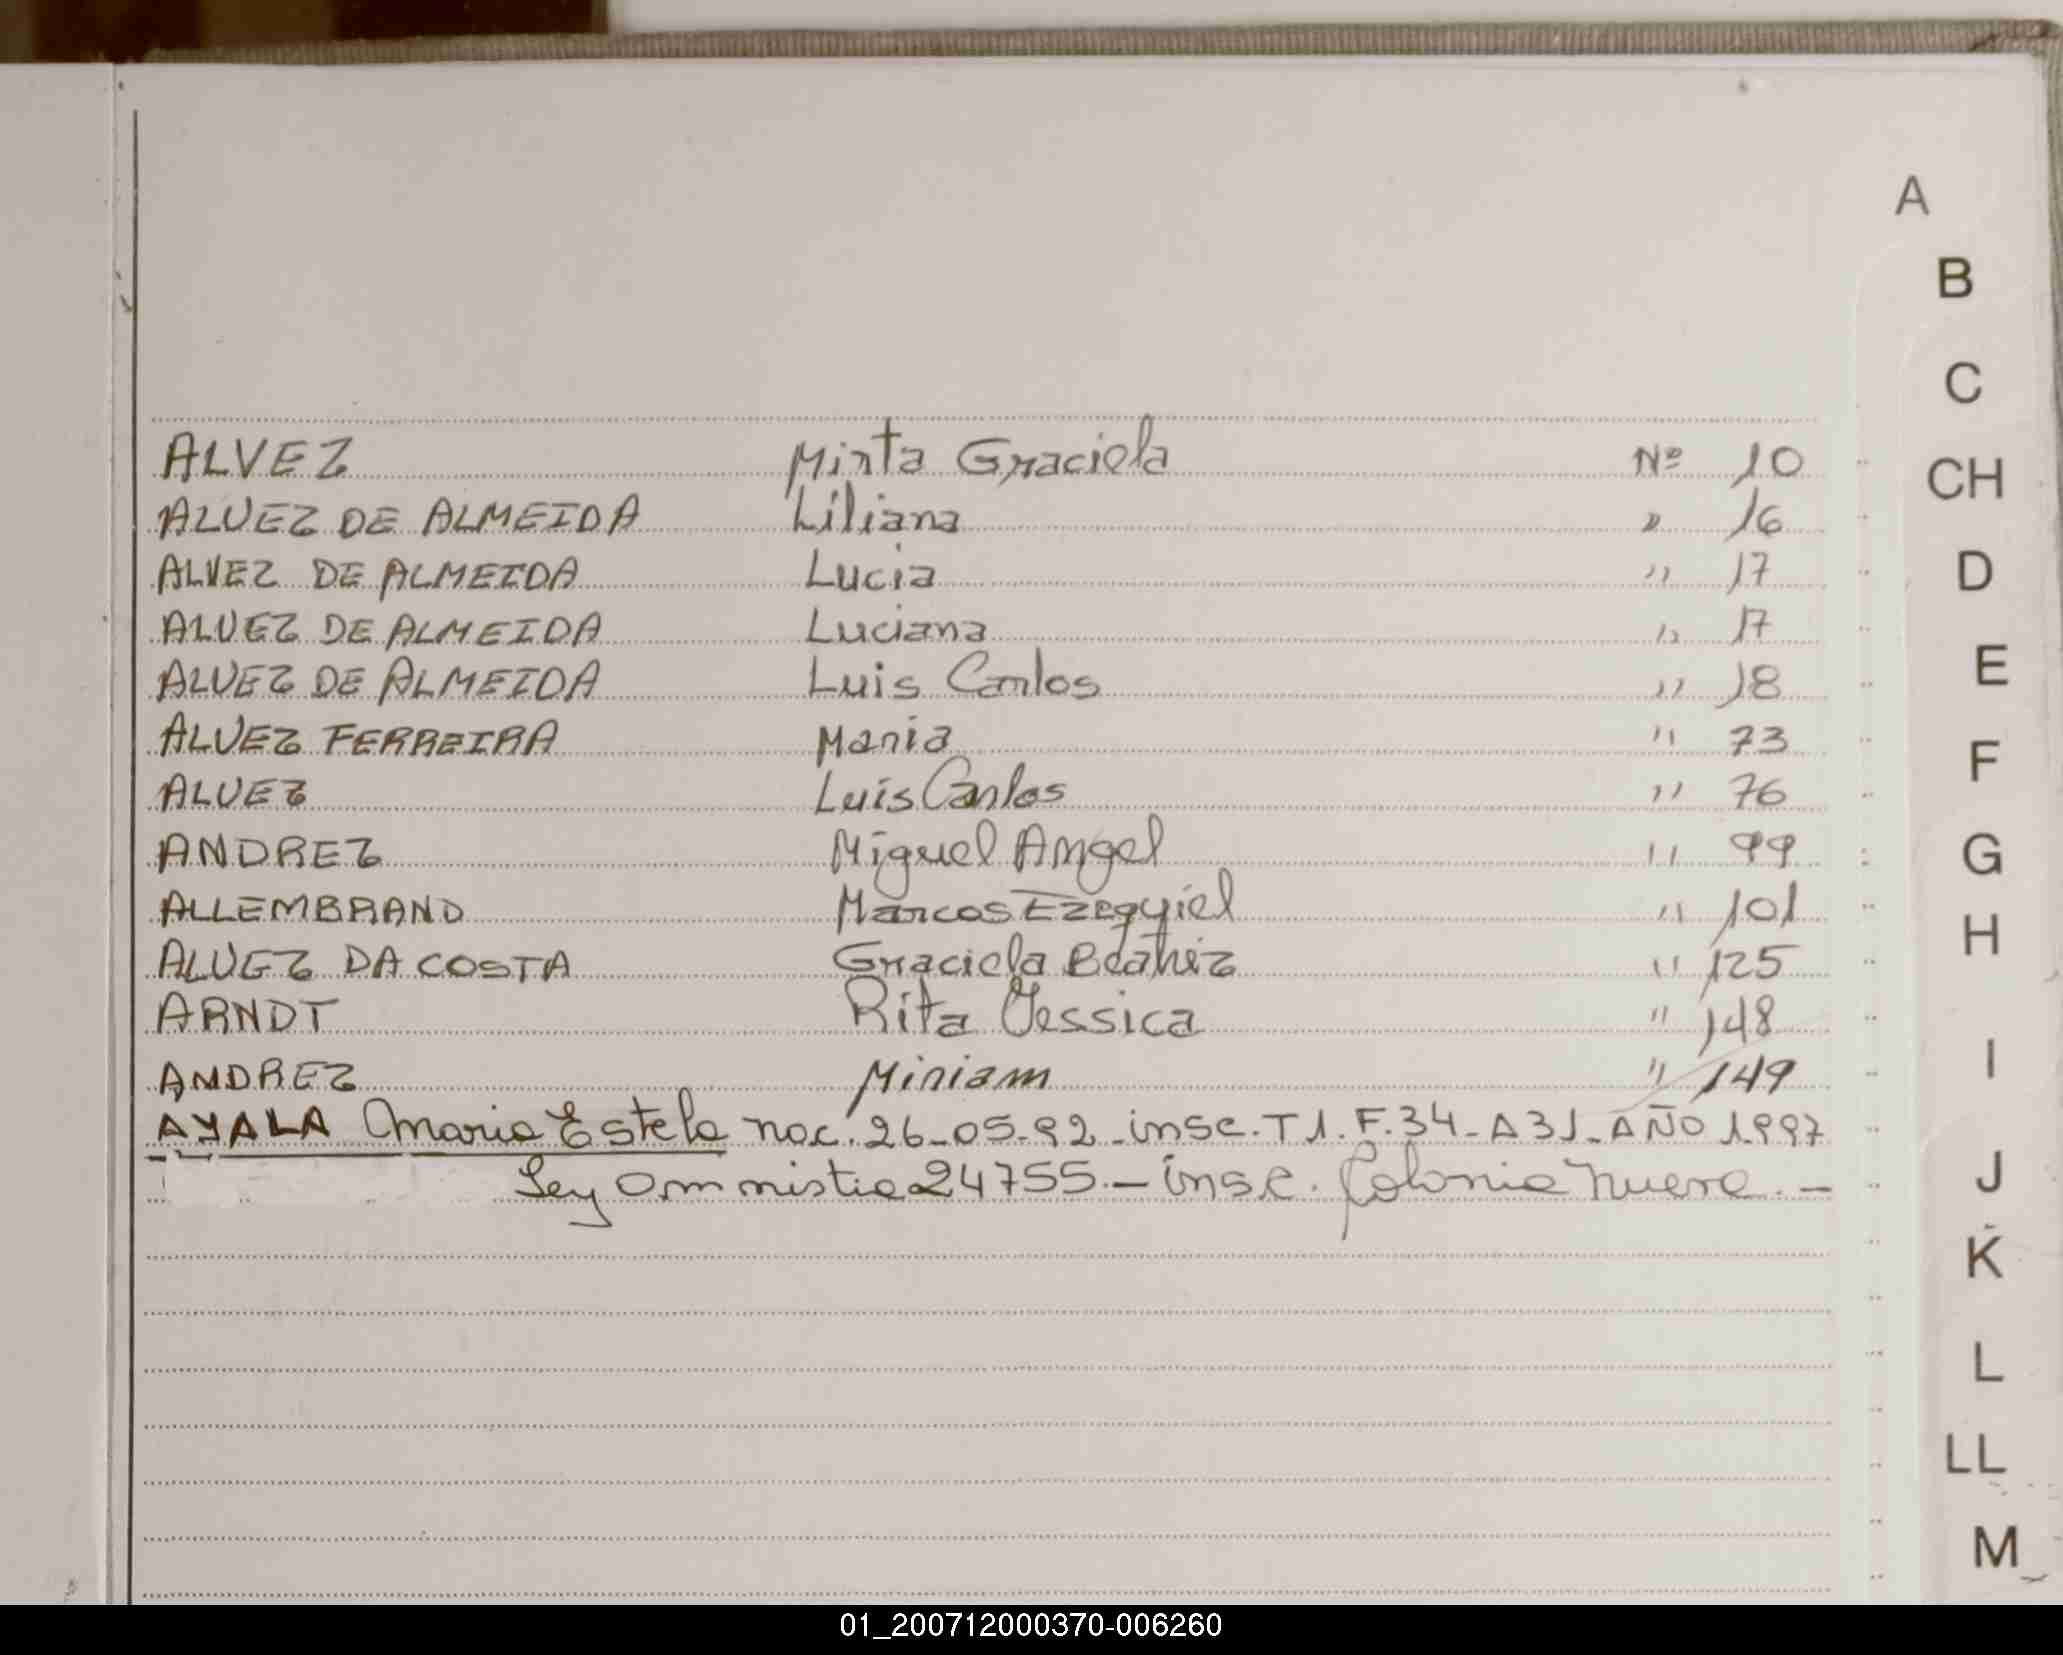 A
B
C
CH
D
E
F
G
H
I
J
K
L
LL
M
ALVEZ Mirta Graciela Nº 10
ALVEZ DE ALMEIDA Liliana " 16
ALVEZ DE ALMEIDA Lucia " 17
ALVEZ DE ALMEIDA Luciana " 17
ALVEZ DE ALMEIDA Luis Carlos " 18
ALVEZ FERREIRA Maria " 73
ALVEZ Luis Carlos " 76
ANDREZ Miguel Angel " 99
ALLEMBRAND Marcos Ezequiel " 101
ALVEZ DA COSTA Graciela Beatriz " 125
ARNDT Rita Yessica " 148
ANDREZ Miriam " 149
AYALA Maria Estela nac. 26-05-92-insc. T1. F.34-A31-AÑO 1997
Ley Ammistia 24755.- insc. Colonia Nueva.-
01_200712000370-006260